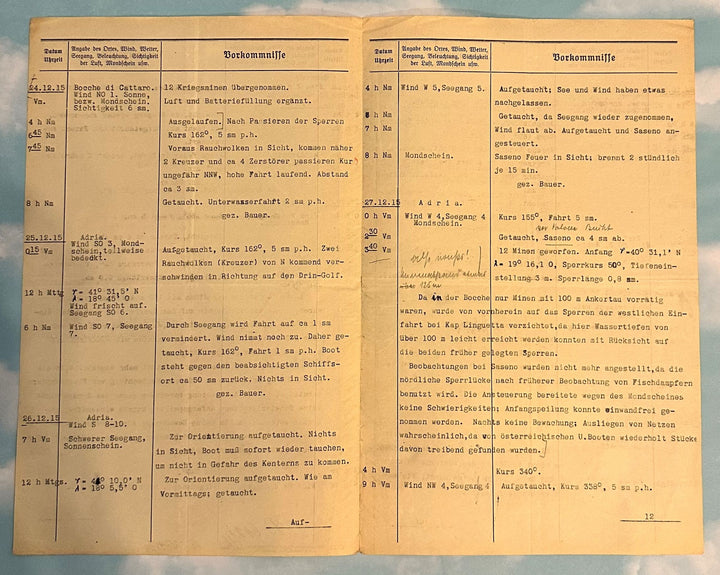 Datum
Uhrzeit
Angabe des Ortes, Wind, Wetter,
Seegang, Beleuchtung, Sichtigkeit
der Luft, Mondschein usw.
Vorkommnisse
24.12.15
Vm.
Bocche di Cattaro.
Wind NO 1. Sonne,
bezw. Mondschein.
Sichtigkeit 6 sm.
12 Kriegsminen übergenommen.
Luft und Batteriefüllung ergänzt.
4 h Nm
Ausgelaufen. Nach Passieren der Sperren
6 45 Nm
Kurs 162°, 5 sm p.h.
7 45 Nm
Voraus Rauchwolken in Sicht, kommen näher
2 Kreuzer und ca 4 Zerstörer passieren Kur
ungefähr NNW, hohe Fahrt laufend. Abstand
ca 3 sm.
8 h Nm
Getaucht. Unterwasserfahrt 2 sm p.h.
gez. Bauer.
25.12.15
0 15 Vm
Adria.
Wind SO 3, Mond-
schein, teilweise
bedeckt.
Aufgetaucht, Kurs 162°, 5 sm p.h. Zwei
Rauchwolken (Kreuzer) von N kommend ver-
schwinden in Richtung auf den Drin-Golf.
12 h Mttg
φ= 41° 31,5' N
λ = 18° 45' O
Wind frischt auf.
Seegang SO 6.
6 h Nm
Wind SO 7, Seegang
7.
Durch Seegang wird Fahrt auf ca 1 sm
vermindert. Wind nimmt noch zu. Daher ge-
taucht, Kurs 162°, Fahrt 1 sm p.h. Boot
steht gegen den beabsichtigten Schiffs-
ort ca 50 sm zurück. Nichts in Sicht.
gez. Bauer.
26.12.15
Adria.
Wind S 8-10.
7 h Vm
Schwerer Seegang,
Sonnenschein.
Zur Orientierung aufgetaucht. Nichts
in Sicht, Boot muß sofort wieder tauchen,
um nicht in Gefahr des Kenterns zu kommen.
12 h Mtgs.
10,0' N
λ = 18° 5,5' O
Zur Orientierung aufgetaucht. Wie am
Vormittags; getaucht.
Auf-
Datum
Uhrzeit
Angabe des Ortes, Wind, Wetter,
Seegang, Beleuchtung, Sichtigkeit
der Luft, Mondschein usw.
Vorkommnisse
4 h Nm
Wind W 5, Seegang 5.
Aufgetaucht; See und Wind haben etwas
nachgelassen.
h Nm
Getaucht, da Seegang wieder zugenommen,
7 h Nm
Wind flaut ab. Aufgetaucht und Saseno an-
gesteuert.
8 h Nm
Mondschein.
Saseno Feuer in Sicht; brennt 2 stündlich
je 15 min.
gez. Bauer.
27.12.15
Adria.
0 h Vm
Wind W 4, Seegang 4
Mondschein.
Kurs 155°, Fahrt 5 sm.
2 30
Getaucht, Saseno ca 4 sm ab.
3 40 Vm
12 Minen geworfen. Anfang φ=40° 31,1' N
λ= 19° 16,1 O, Sperrkurs 50°, Tiefenein-
stellung 3 m. Sperrlänge 0,8 sm.
Da in der Bocche nur Minen mit 100 m Ankertau vorrätig
waren, wurde von vornherein auf das Sperren der westlichen Ein-
fahrt bei Kap Linguetta verzichtet, da hier Wassertiefen von
über 100 m leicht erreicht werden konnten mit Rücksicht auf
die beiden früher gelegten Sperren.
Beobachtungen bei Saseno wurden nicht mehr angestellt, da die
nördliche Sperrlücke nach früherer Beobachtung von Fischdampfern
benutzt wird. Die Ansteuerung bereitete wegen des Mondscheines
keine Schwierigkeiten; Anfangspeilung konnte einwandfrei ge-
nommen werden. Nachts keine Bewachung; Ausliegen von Netzen
wahrscheinlich, da von österreichischen U.Booten wiederholt Stücke
davon treibend gefunden wurden.
4 h Vm
Kurs 340°.
9 h Vm
Wind NW 4, Seegang 4
Aufgetaucht, Kurs 338°, 5 sm p.h.
12